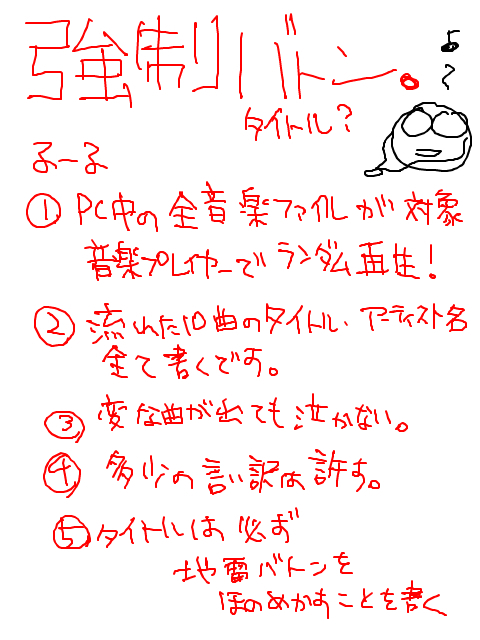 強制バトン。
よ~
タイトル?
るーる
① PC中の全音楽ファイルが対象
音楽プレイヤーでランダム再生!
② 流れた10曲のタイトル、アーティスト名
全て書くです。
③ 変な曲が出ても泣かない。
④ 多少の言い訳は許す。
⑤ タイトルは必ず
地雷バトンを
ほのめかすことを書く